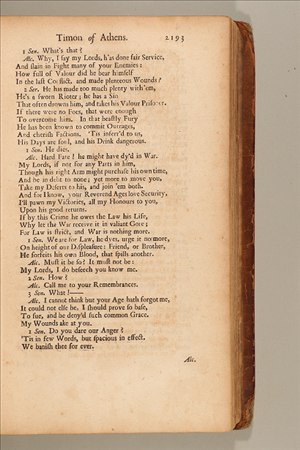 Timon of Athens. 2193
1 Sen. What's that?
Alc. Why, I say my Lords, h'as done fair Service,
And slain in Fight many of your Enemies:
How full of Valour did he bear himself
In the last Conflict, and made plenteous Wounds?
2 Sen. He has made too much plenty with 'em,
He's a sworn Rioter; he has a Sin
That often drowns him, and takes his Valour Prisoner.
If there were no Foes, that were enough
To overcome him. In that beastly Fury
He has been known to commit Outrages,
And cherish Factions. 'Tis inferr'd to us,
His Days are foul, and his Drink dangerous.
1 Sen. He dies.
Alc. Hard Fate! he might have dy'd in War.
My Lords, if not for any Parts in him,
Though his right Arm might purchase his own time,
And be in debt to none; yet more to move you,
Take my Deserts to his, and join 'em both.
And for I know, your Reverend Ages love Security,
I'll pawn my Victories, all my Honours to you,
Upon his good returns.
If by this Crime he owes the Law his Life,
Why let the War receive it in valiant Gore;
For Law is strict, and War is nothing more.
1 Sen. We are for Law, he dyes, urge it no more,
On height of our Displeasure: Friend, or Brother,
He forfeits his own Blood, that spills another.
Alc. Must it be so? It must not be:
My Lords, I do beseech you know me.
2 Sen. How?
Alc. Call me to your Remembrances.
3 Sen. What!——
Alc. I cannot think but your Age hath forgot me,
It could not else be. I should prove so base,
To sue, and be deny'd such common Grace.
My Wounds ake at you.
1 Sen. Do you dare our Anger?
'Tis in few Words, but spacious in effect.
We banish thee for ever.
Alc.